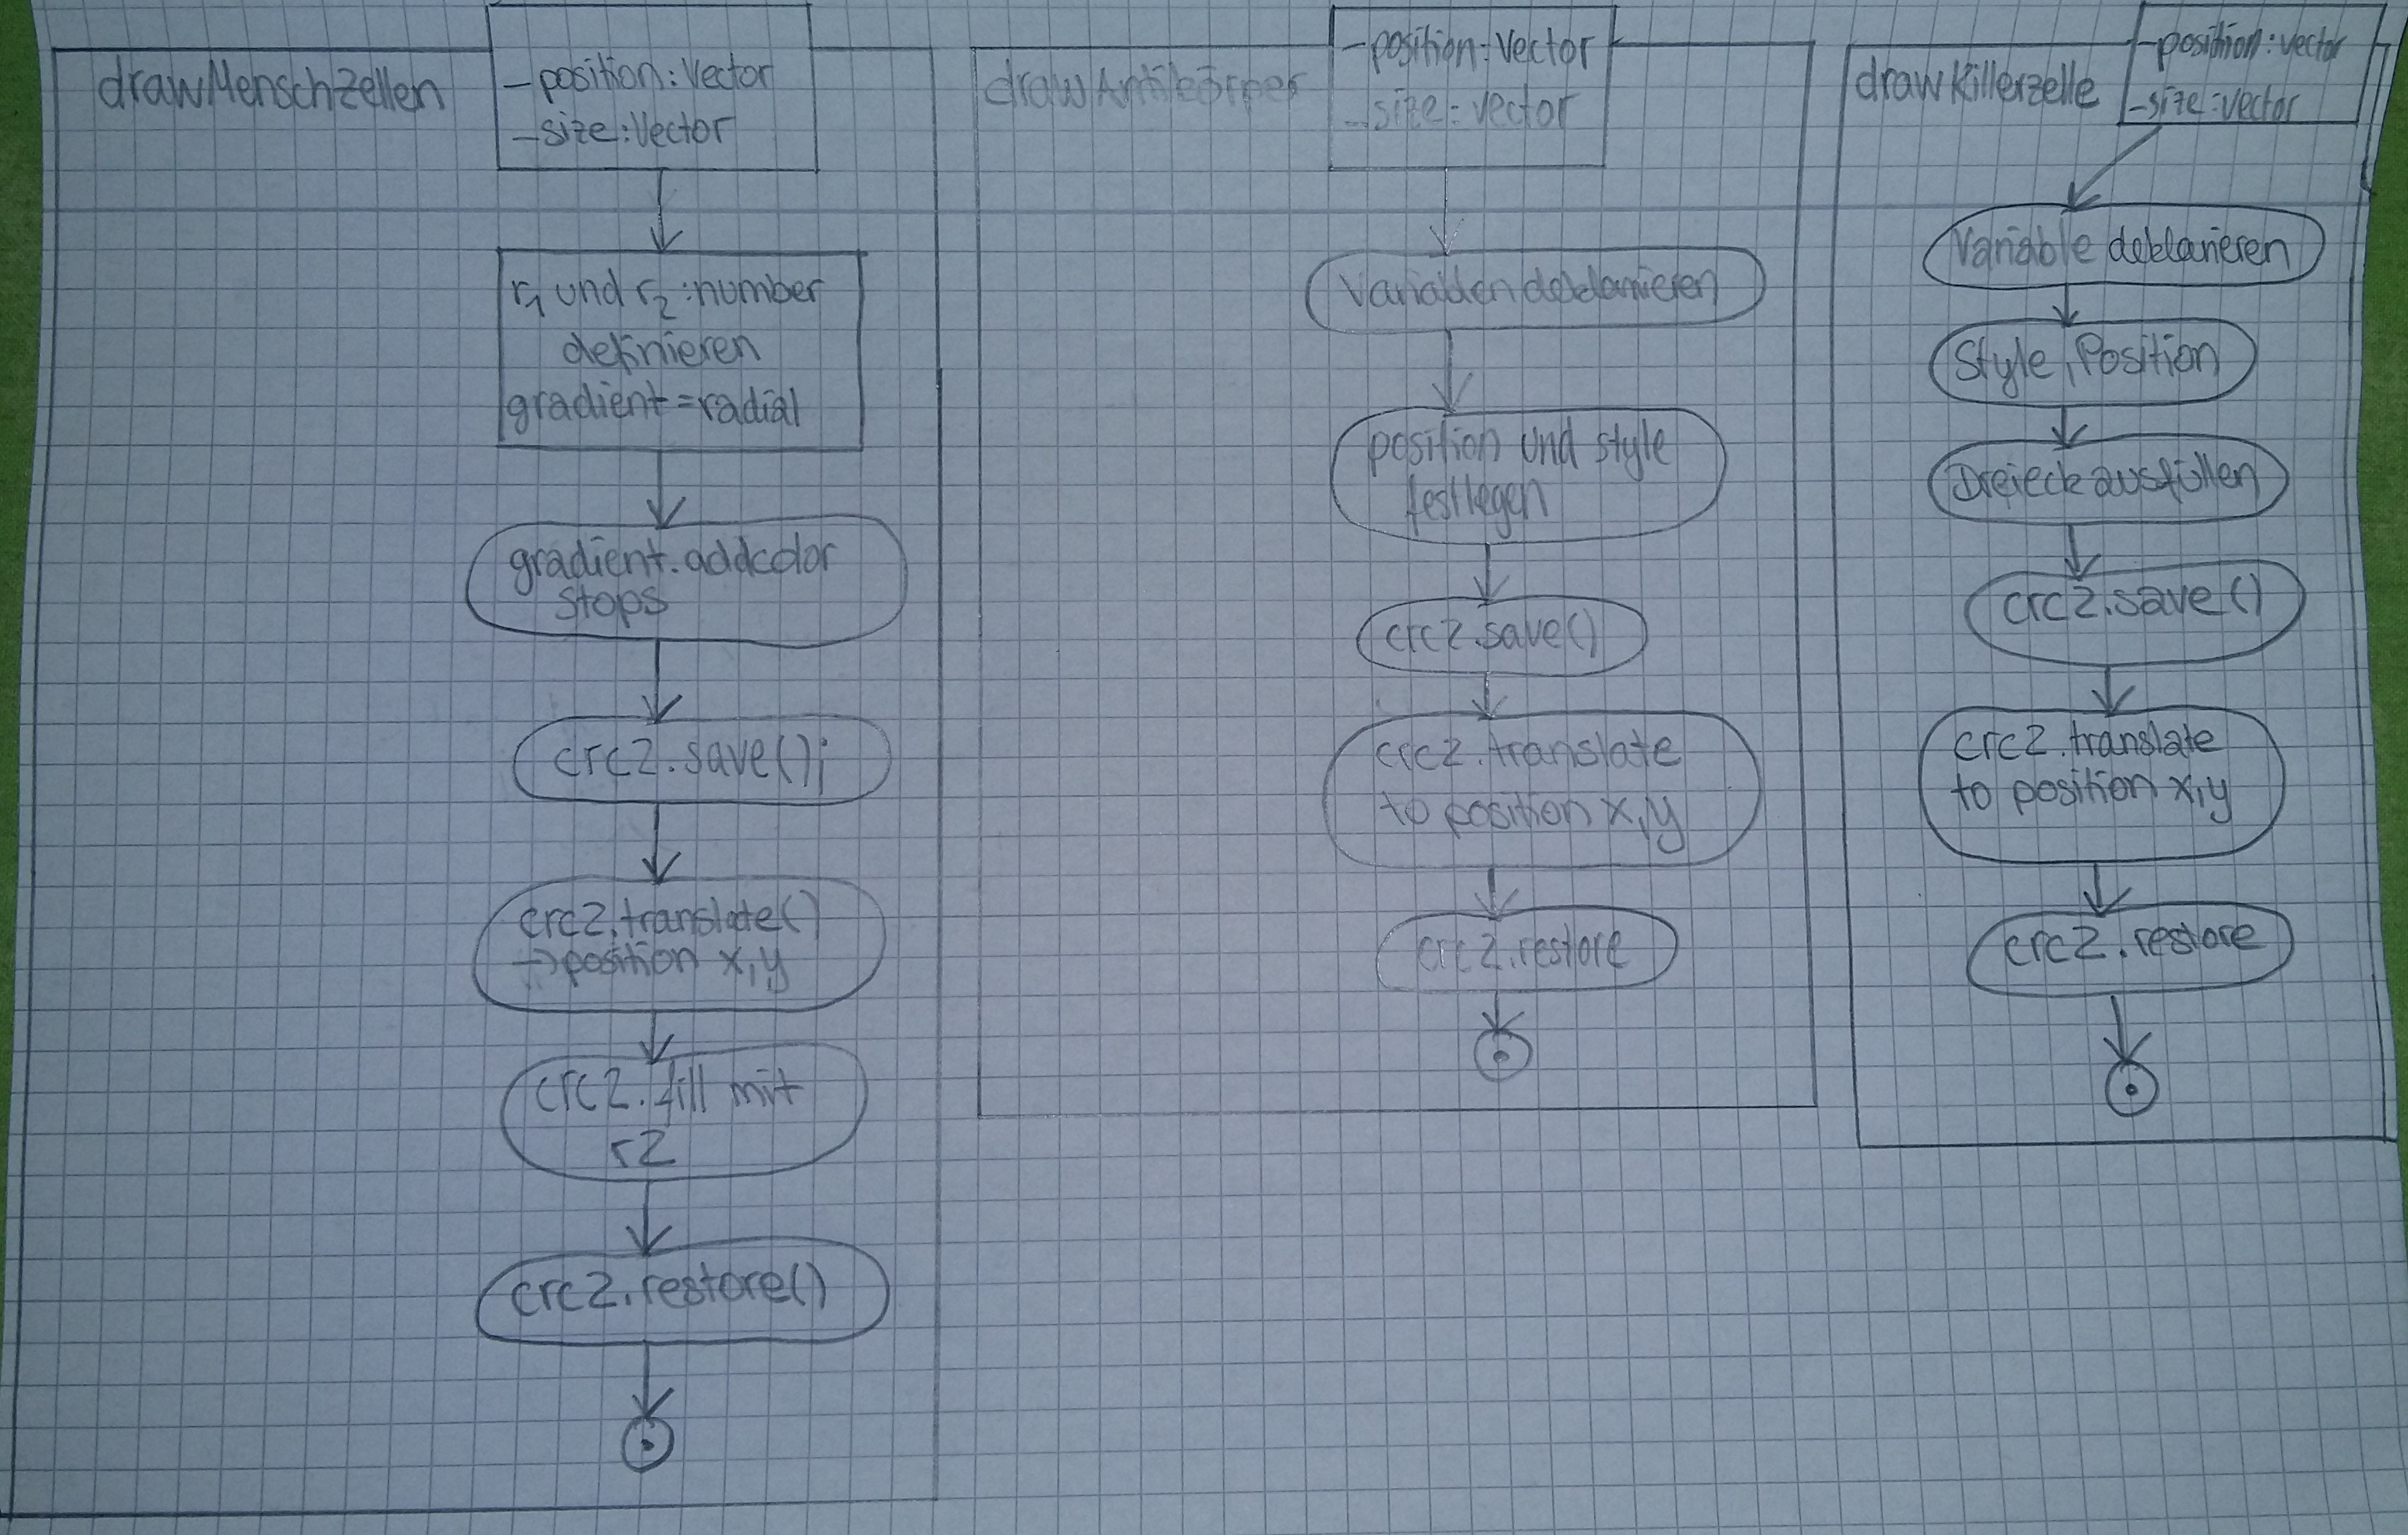 drawMenschZellen
-position:Vector
-size:Vector
r1 und r2:number
definieren
gradient=radial
gradient.addcolor
stops
crc2.save();
crc2.translate()
->position x,y
crc2.fill mit
r2
crc2.restore()
drawAntikörper
-position:Vector
-size:vector
Variablen deklarieren
position und style
festlegen
crc2.save()
crc2.translate
to position x,y
crc2.restore
drawKillerzelle
-position:vector
-size:vector
Variable deklarieren
Style, Position
Dreieck ausfüllen
crc2.save()
crc2.translate
to position x,y
crc2.restore